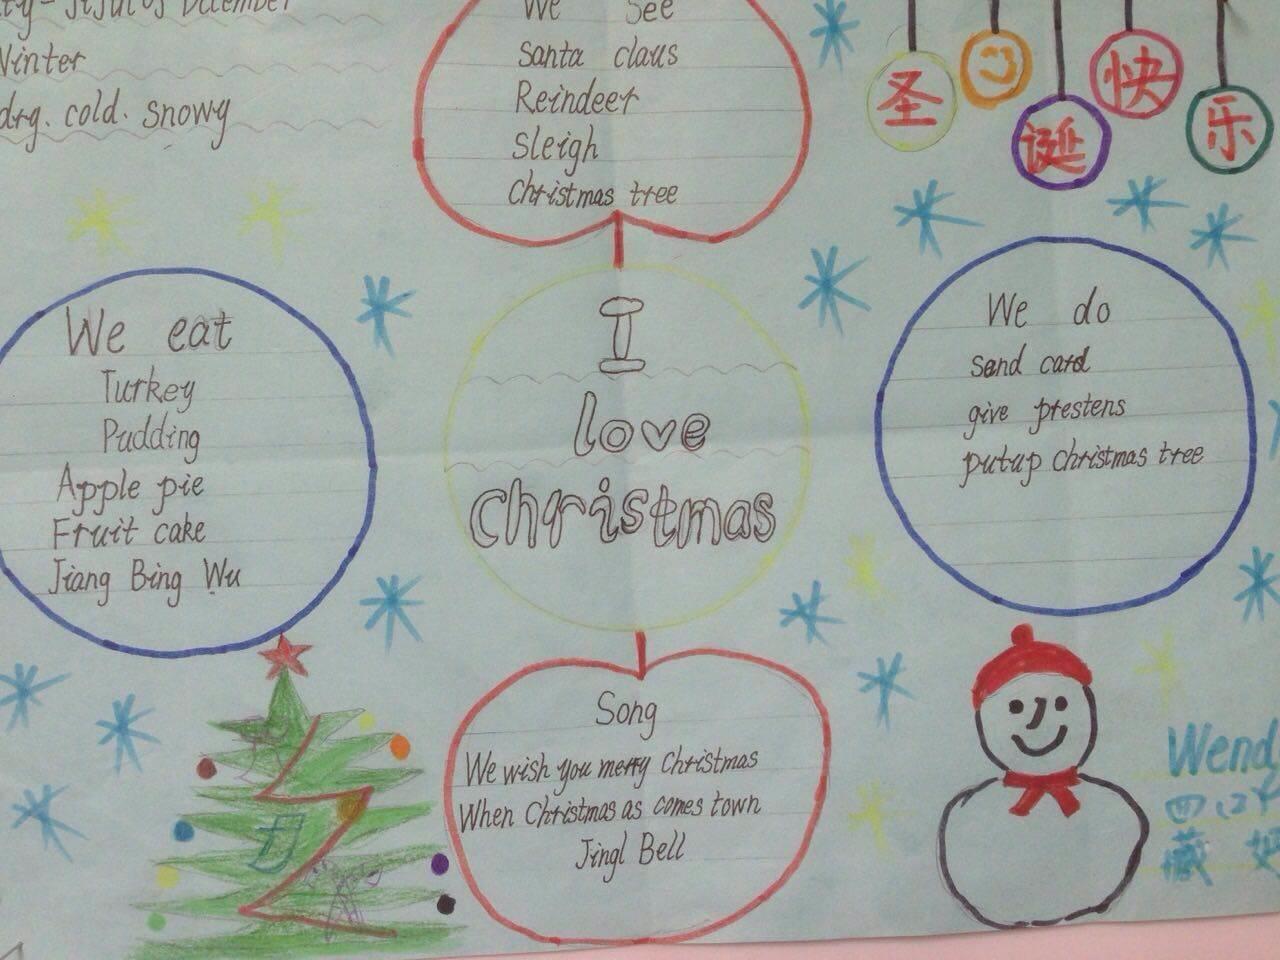 Winter
cold. snowy
We See
Santa claus
Reindeer
Sleigh
Christmas tree
圣
诞
快
乐
We eat
Turkey
Pudding
Apple pie
Fruit cake
Jiang Bing Wu
I
love
christmas
We do
send card
give prestens
putup christmas tree
Song
We wish you merry Christmas
When Christmas as comes town
Jingl Bell
Wend
四
藏